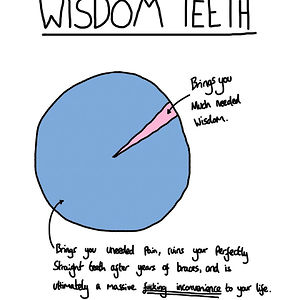 WISDOM TEETH
Brings you
Much needed
Wisdom.
Brings you uneeded Pain, ruins your perfectly
Straight teeth after years of braces, and is
ultimately a massive fucking inconvenience to your life.